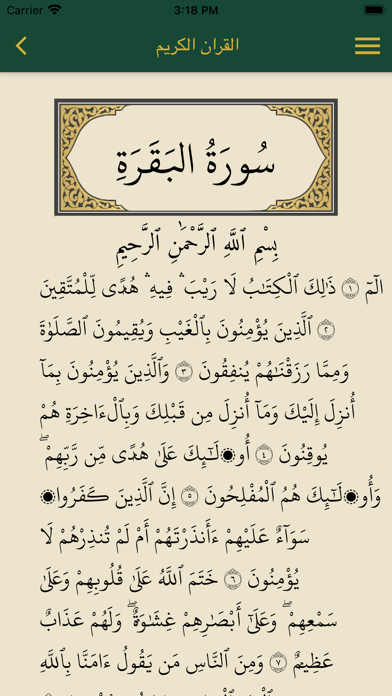 Carrier 3:18 PM
القران الكريم
سُورَةُ البَقَرَةِ
بِسْمِ ٱللَّهِ ٱلرَّحْمَٰنِ ٱلرَّحِيمِ
الٓمٓ ۝١ ذَٰلِكَ ٱلْكِتَٰبُ لَا رَيْبَ ۛ فِيهِ ۛ هُدًى لِّلْمُتَّقِينَ
۝٢ ٱلَّذِينَ يُؤْمِنُونَ بِٱلْغَيْبِ وَيُقِيمُونَ ٱلصَّلَوٰةَ
وَمِمَّا رَزَقْنَٰهُمْ يُنفِقُونَ ۝٣ وَٱلَّذِينَ يُؤْمِنُونَ بِمَآ
أُنزِلَ إِلَيْكَ وَمَآ أُنزِلَ مِن قَبْلِكَ وَبِٱلْءَاخِرَةِ هُمْ
يُوقِنُونَ ۝٤ أُو۟لَٰٓئِكَ عَلَىٰ هُدًى مِّن رَّبِّهِمْ ۖ
وَأُو۟لَٰٓئِكَ هُمُ ٱلْمُفْلِحُونَ ۝٥ إِنَّ ٱلَّذِينَ كَفَرُوا۟
سَوَآءٌ عَلَيْهِمْ ءَأَنذَرْتَهُمْ أَمْ لَمْ تُنذِرْهُمْ لَا
يُؤْمِنُونَ ۝٦ خَتَمَ ٱللَّهُ عَلَىٰ قُلُوبِهِمْ وَعَلَىٰ
سَمْعِهِمْ ۖ وَعَلَىٰٓ أَبْصَٰرِهِمْ غِشَٰوَةٌ ۖ وَلَهُمْ عَذَابٌ
عَظِيمٌ ۝٧ وَمِنَ ٱلنَّاسِ مَن يَقُولُ ءَامَنَّا بِٱللَّهِ